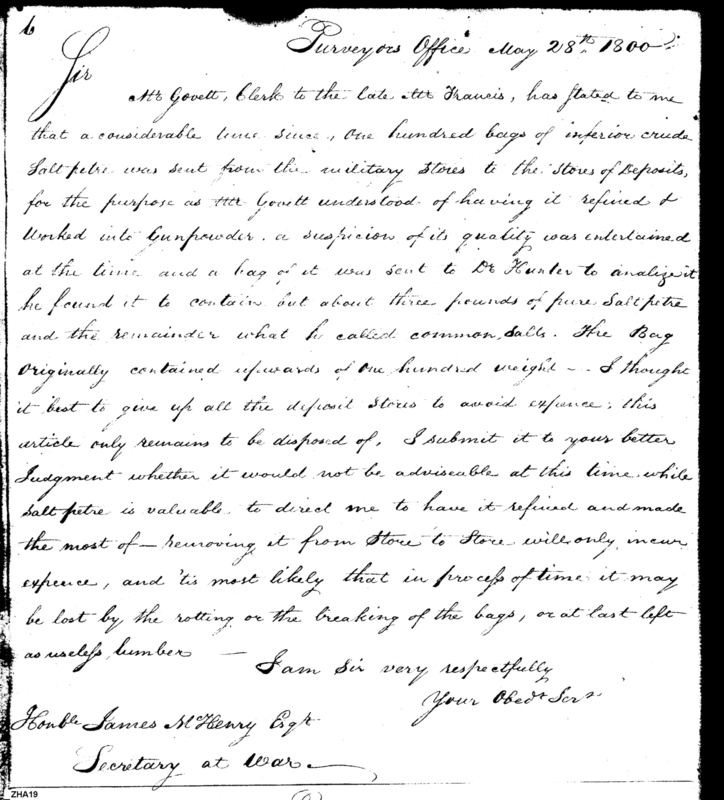 6
Purveyors Office May 28th 1800
Sir
Mr Govett, Clerk to the late Mr Francis, has stated to me
that a considerable time since, one hundred bags of inferior crude
Saltpetre was sent from the military Stores to the Stores of Deposits,
for the purpose as Mr Govett understood of having it refined &
Worked into Gunpowder. a suspicion of its quality was entertained
at the time and a bag of it was sent to Dr Hunter to analize it
he found it to contain but about three pounds of pure Saltpetre
and the remainder what he called common Salts. The Bag
Originally contained upwards of one hundred weight - . I thought
it best to give up all the deposit Stores to avoid expence; this
article only remains to be disposed of, I submit it to your better
Judgment whether it would not be adviseable at this time while
Saltpetre is valuable to direct me to have it refined and made
the most of — removing it from Store to Store will only incur
expence, and 'tis most likely that in process of time it may
be lost by the rotting or the breaking of the bags, or at last left
as useless lumber —
I am Sir very respectfully
Your Obedt Servt
Honble James McHenry Esqr
Secretary at War —
ZHA19